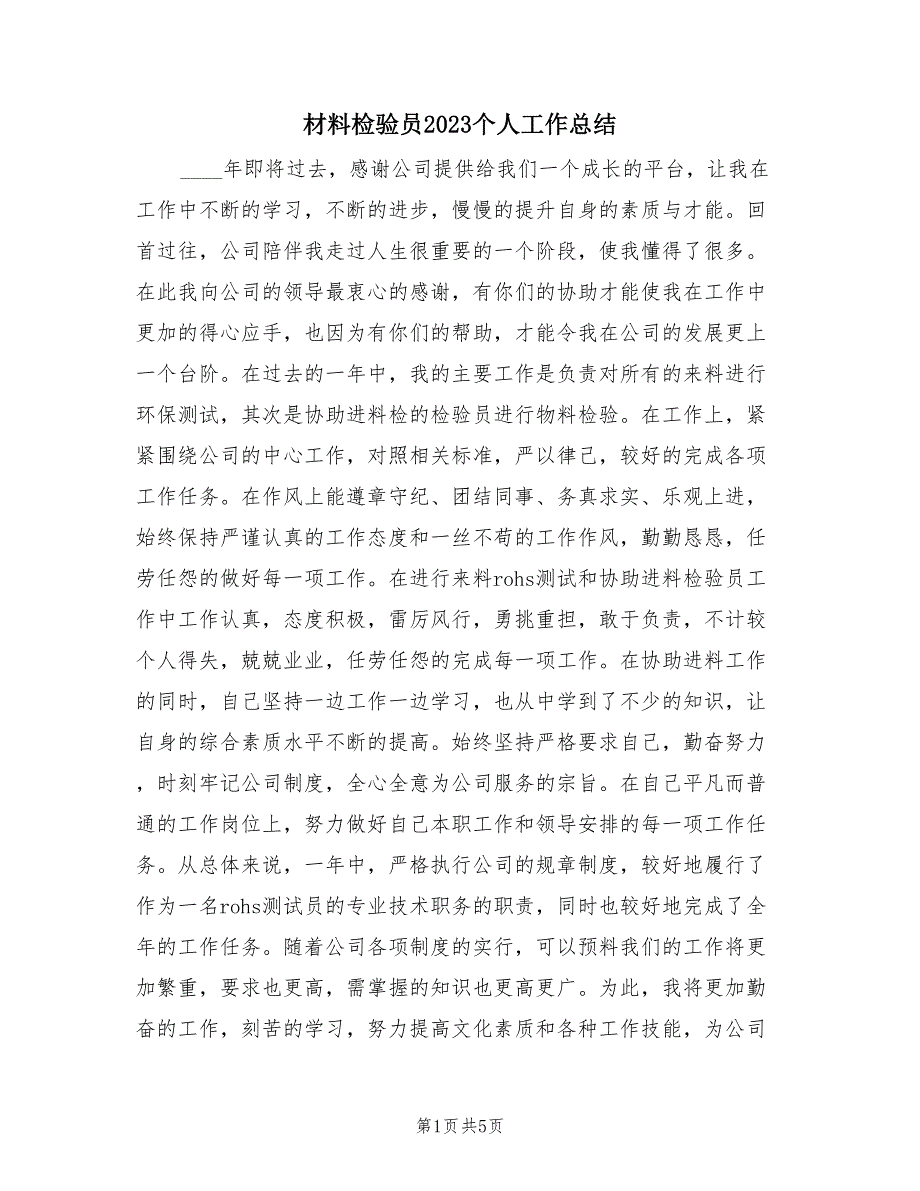 材料检验员2023个人工作总结
____年即将过去，感谢公司提供给我们一个成长的平台，让我在
工作中不断的学习，不断的进步，慢慢的提升自身的素质与才能。回
首过往，公司陪伴我走过人生很重要的一个阶段，使我懂得了很多。
在此我向公司的领导最衷心的感谢，有你们的协助才能使我在工作中
更加的得心应手，也因为有你们的帮助，才能令我在公司的发展更上
一个台阶。在过去的一年中，我的主要工作是负责对所有的来料进行
环保测试，其次是协助进料检的检验员进行物料检验。在工作上，紧
紧围绕公司的中心工作，对照相关标准，严以律己，较好的完成各项
工作任务。在作风上能遵章守纪、团结同事、务真求实、乐观上进，
始终保持严谨认真的工作态度和一丝不苟的工作作风，勤勤恳恳，任
劳任怨的做好每一项工作。在进行来料rohs测试和协助进料检验员工
作中工作认真，态度积极，雷厉风行，勇挑重担，敢于负责，不计较
个人得失，兢兢业业，任劳任怨的完成每一项工作。在协助进料工作
的同时，自己坚持一边工作一边学习，也从中学到了不少的知识，让
自身的综合素质水平不断的提高。始终坚持严格要求自己，勤奋努力
，时刻牢记公司制度，全心全意为公司服务的宗旨。在自己平凡而普
通的工作岗位上，努力做好自己本职工作和领导安排的每一项工作任
务。从总体来说，一年中，严格执行公司的规章制度，较好地履行了
作为一名rohs测试员的专业技术职务的职责，同时也较好地完成了全
年的工作任务。随着公司各项制度的实行，可以预料我们的工作将更
加繁重，要求也更高，需掌握的知识也更高更广。为此，我将更加勤
奋的工作，刻苦的学习，努力提高文化素质和各种工作技能，为公司
第1页 共5页